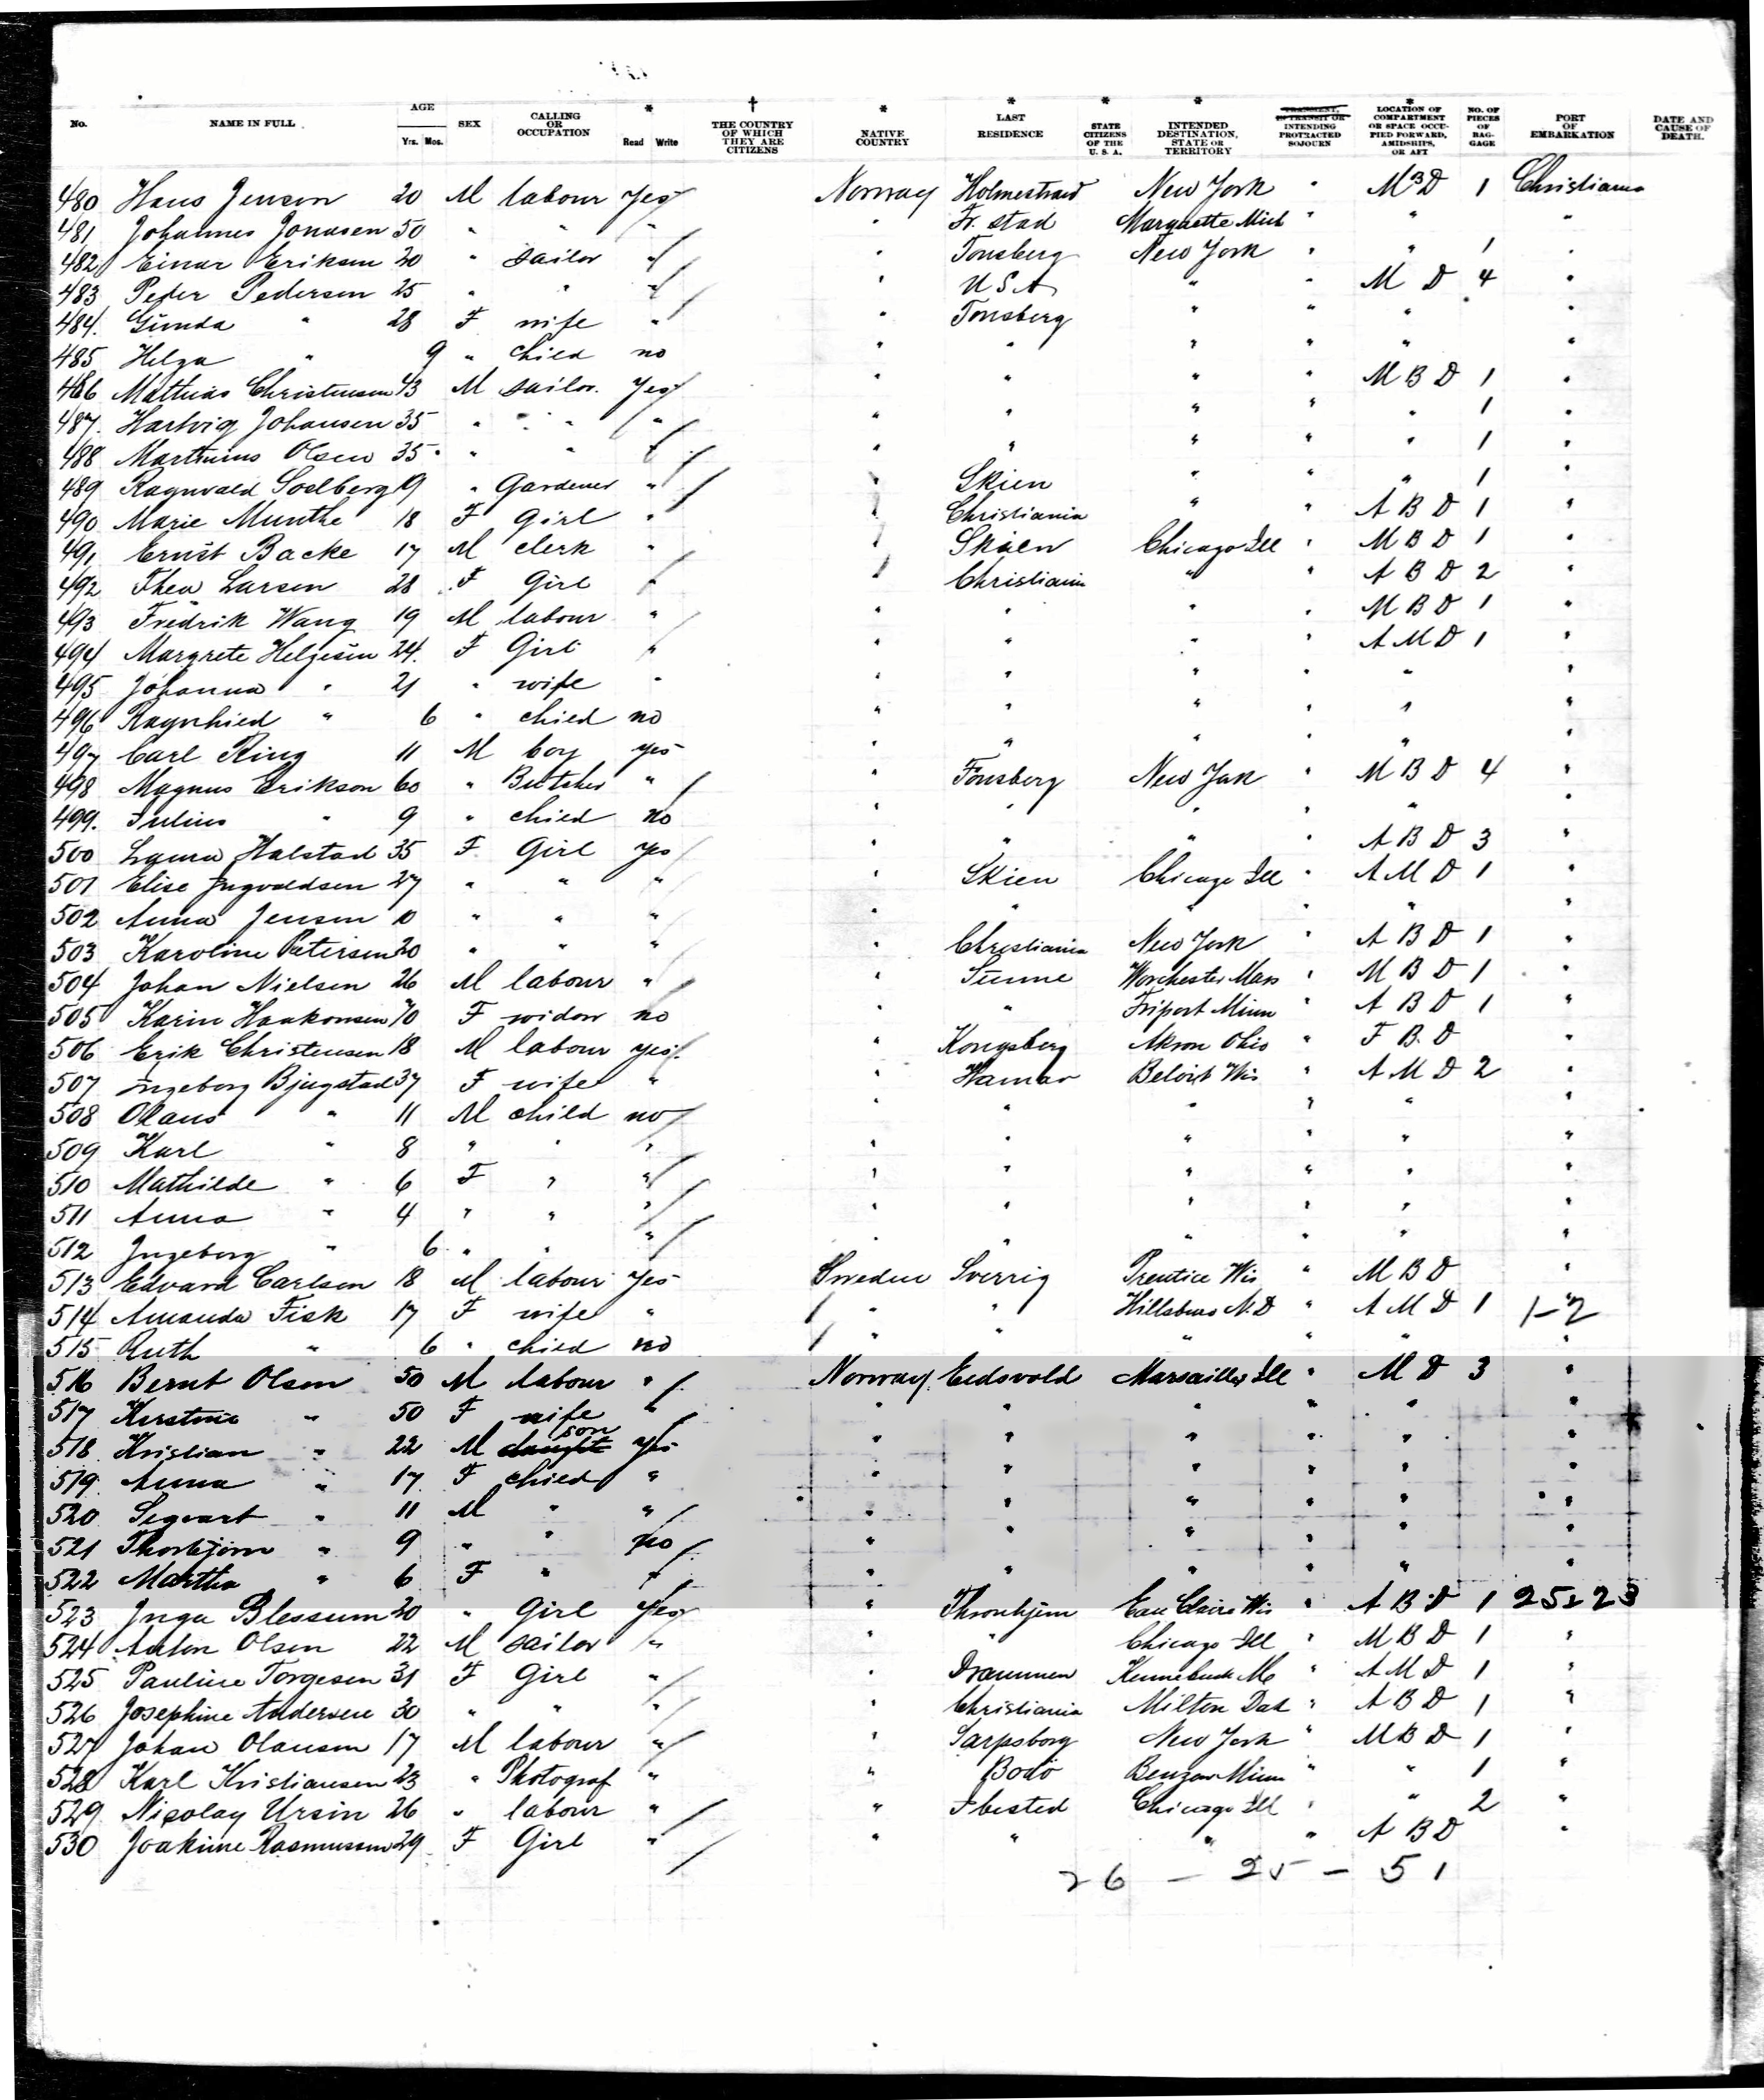 No. NAME IN FULL. AGE Yrs. Mos. SEX CALLING OR OCCUPATION * Read Write † THE COUNTRY OF WHICH THEY ARE CITIZENS * NATIVE COUNTRY * LAST RESIDENCE * STATE CITIZENS OF THE U. S. A. * INTENDED DESTINATION, STATE OR TERRITORY TRANSIENT, IN TRANSIT OR INTENDING PROTRACTED SOJOURN * LOCATION OF COMPARTMENT OR SPACE OCCUPIED FORWARD, AMIDSHIPS, OR AFT NO. OF PIECES OF BAGGAGE PORT OF EMBARKATION DATE AND CAUSE OF DEATH.
480 Hans Jensen 20 M labour Yes Norway Holmestrand New York " M B D 1 Christiania
481 Johannes Jonasen 50 " " " " Fr. stad Marquette Mich " " "
482 Einar Eriksen 20 " sailor " " Tonsberg New York " " 1 "
483 Peder Pedersen 25 " " " " U S A " " M D 4 "
484. Gunda " 28 F wife " " Tonsberg " " " "
485 Helga " 9 " child no " " " " " "
486 Mathias Christensen 43 M sailor. Yes " " " M B D 1 "
487. Hartvig Johansen 35 " " " " " " " " 1 "
488 Martinius Olsen 35 " " " " " " " " 1 "
489 Ragnvald Soelberg 19 " Gardener " " Skien " " " 1 "
490 Marie Munthe 18 F Girl " " Christiania " " A B D 1 "
491 Ernst Backe 17 M clerk " " Skien Chicago Ill " M B D 1 "
492 Thea Larsen 28 F Girl " " Christiania " " A B D 2 "
493 Fredrik Wang 19 M labour " " " " " M B D 1 "
494 Margrete Helgesen 24. F Girl " " " " " A M D 1 "
495 Johanna " 21 " wife " " " " " " "
496 Ragnhild " 6 " child no " " " " " "
497 Carl Ring 11 M boy yes " " " " " "
498 Magnus Erikson 60 " Butcher " " Tonsberg New York " M B D 4 "
499. Julius " 9 " child no " " " " " "
500 Laura Halstad 35 F. Girl yes " " " " A B D 3 "
501 Elise Ingvaldsen 27 " " " " Skien Chicago Ill " A M D 1 "
502 Anna Jensen 10 " " " " " " " " "
503 Karoline Petersen 20 " " " " Christiania New York " A B D 1 "
504 Johan Nielsen 26 M labour " " Sunne Worchester Mass " M B D 1 "
505 Karin Haakonsen 70 F widow no " " Friport Minn " A B D 1 "
506 Erik Christensen 18 M labour yes " Kongsberg Akron Ohio " F B. D "
507 Ingeborg Bjugstad 37 F wife " " Hamar Beloit Wis " A M D 2 "
508 Olaus " 11 M child no " " " " " "
509 Karl " 8 " " " " " " " " "
510 Mathilde " 6 F " " " " " " " "
511 Anna " 4 " " " " " " " " "
512 Ingeborg " 6 " " " " " " " " "
513 Edvard Carlsen 18 M labour yes Sweden Sverrig Prentice Wis " M B D "
514 Amanda Fisk 17 F wife " " " Hillsburo N. D " A M D 1 1-2
515 Ruth " 6 " child no " " " " " "
516 Bernt Olsen 50 M labour " Norway Eedsvold Marsailles Ill " M D 3 "
517 Kerstine " 50 F wife " " " " " " "
518 Kristian " 22 M daught son yes " " " " " "
519. Anna " 17. F child " " " " " " "
520 Segvart " 11 M " " " " " " " "
521 Thorbjorn " 9 " " no " " " " " "
522 Martha " 6 F " " " " " " " "
523 Inga Blessum 20 " Girl Yes " Thronhjem Eau Claire Wis " A B D 1 25-23
524 Anton Olsen 22 M sailor " " " Chicago Ill " M B D 1 "
525 Pauline Torgesen 31 F Girl " " Drammen Kennebunk Me " A M D 1 "
526 Josephine Andersen 30 " " " " Christiania Milton Dak " A B D 1 "
527 Johan Olausen 17 M labour " " Sarpsborg New York " M B D 1 "
528 Karl Kristiansen 23 " Photograf " " Bodo Minn " " 1 "
529 Nicolay Ursin 26 " labour " " Ibested Chicago Ill " " 2 "
530 Joakime Rasmussen 29 F Girl " " " " " A B D "
26 - 25 - 51